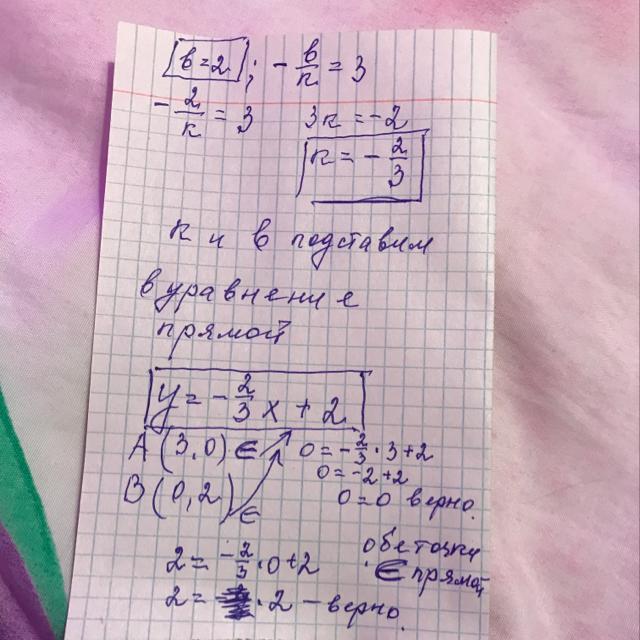 в = 2 ; - в/к = 3
- 2/к = 3 3к = -2
к = - 2/3
к и в подставим
в уравнение
прямой
y = - 2/3 x + 2
A (3,0) ∈ 0 = - 2/3 · 3 + 2
0 = -2 + 2
B (0,2) ∈ 0 = 0 верно.
2 = - 2/3 · 0 + 2 обе точки
∈ прямой
2 = · 2 – верно.